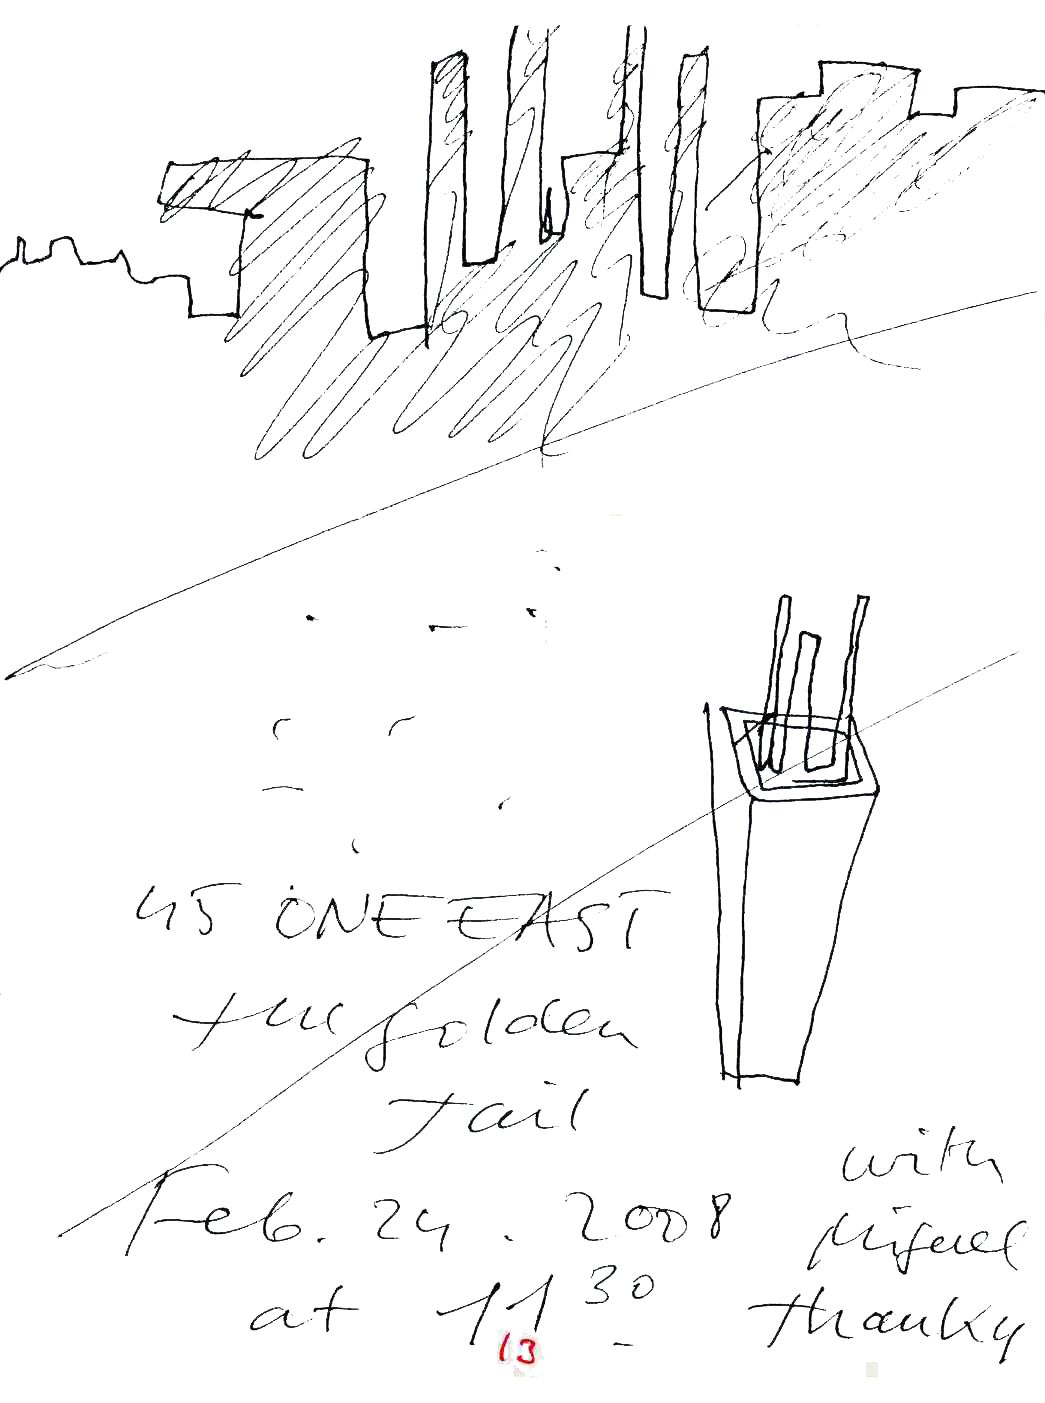 45 ONE EAST
the golden
tail
Feb. 24. 2008
at 11 30
with
Miguel
thanky
13